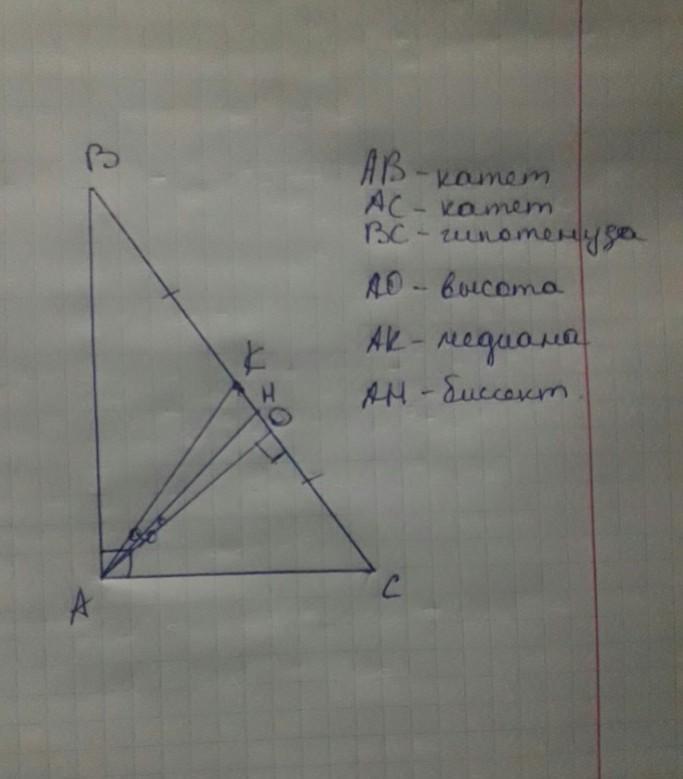 B
AB - катет
AC - катет
BC - гипотенуза
AO - высота
K
AK - медиана
H
AH - биссект.
O
A
C